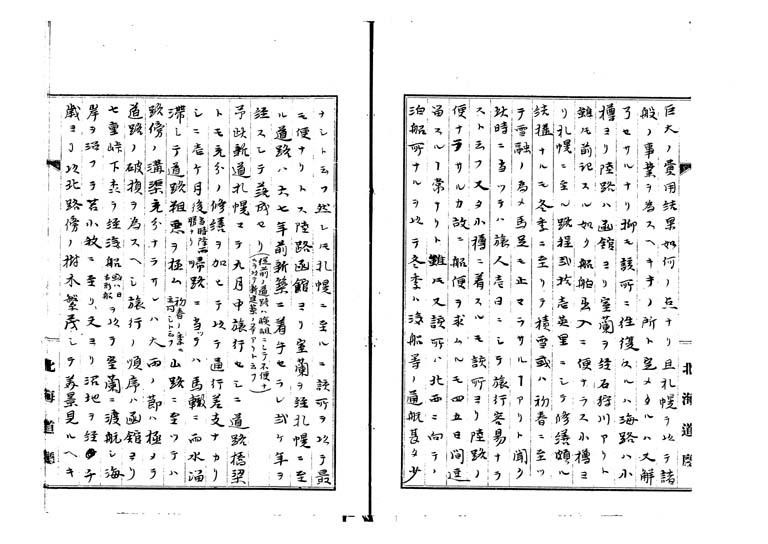 巨大ノ費用結果如何ノ点ナリ且札幌ヲ以テ諸
般ノ事業ヲ為スヘキ才ノ所ト定メタルハ又解
了セサルナリ抑モ該所ニ往復スルハ海路ハ小
樽ヨリ陸路ハ函館ヨリ室蘭ヲ経石狩川アリト
雖モ前記スル如ク船舶出入ニ便ナラス小樽ヨ
リ札幌ニ至ル路程弐拾壱英里ニシテ修繕頗ル
結構ナルモ冬季ニ至リテ積雪或ハ初春ニ至ツ
テ雪融ノ為メ馬足モ止マラサルアリト聞ク
此時ニ当ツテハ旅人壱日ニシテ旅行容易ナラ
ストモフ又タ小樽ニ着スルモ該所ヨリ陸路ノ
便ナラサルカ故ニ船便ヲ求ムルモ四五日間逗
留スル常ナリト雖モ又該所ハ北西ニ向テノ
泊船所ナルヲ以テ冬季ハ汽船等ノ通航甚タ少
北海道庁
ナシト云フ然レ𪜈札幌ニ至ルニ該所ヲ以テ最
モ便ナリトス陸路函館ヨリ室蘭ヲ経札幌ニ至
ル道路ハ六七年前新築ニ着手セラレ弐ケ年ヲ
経スシテ落成セリ(従前ノ道路ハ
予此新道札幌マテ九月中旅行セシニ道路橋梁
トモ充分ノ修繕ヲ加ヘテ以テ通行差支ナカリ
シニ壱ケ月後帰路ニ当ツテハ馬轍ニ雨水溜
滞シテ道路粗悪ヲ極ム山路ニ至ツテハ
路傍ノ溝渠充分ナラサレハ大雨ノ節ハ極メテ
道路ノ破損ヲ為スヘシ旅行ノ順序ハ函館ヨリ
七重峠下森ヲ経汽船ヲ以テ室蘭ニ渡航シ海
岸ヲ沿フテ苫小牧ニ至リ夫ヨリ沼地ヲ経千
歳ヨリ以北路傍ノ樹木繁茂シテ美景見ルヘキ
北海道庁